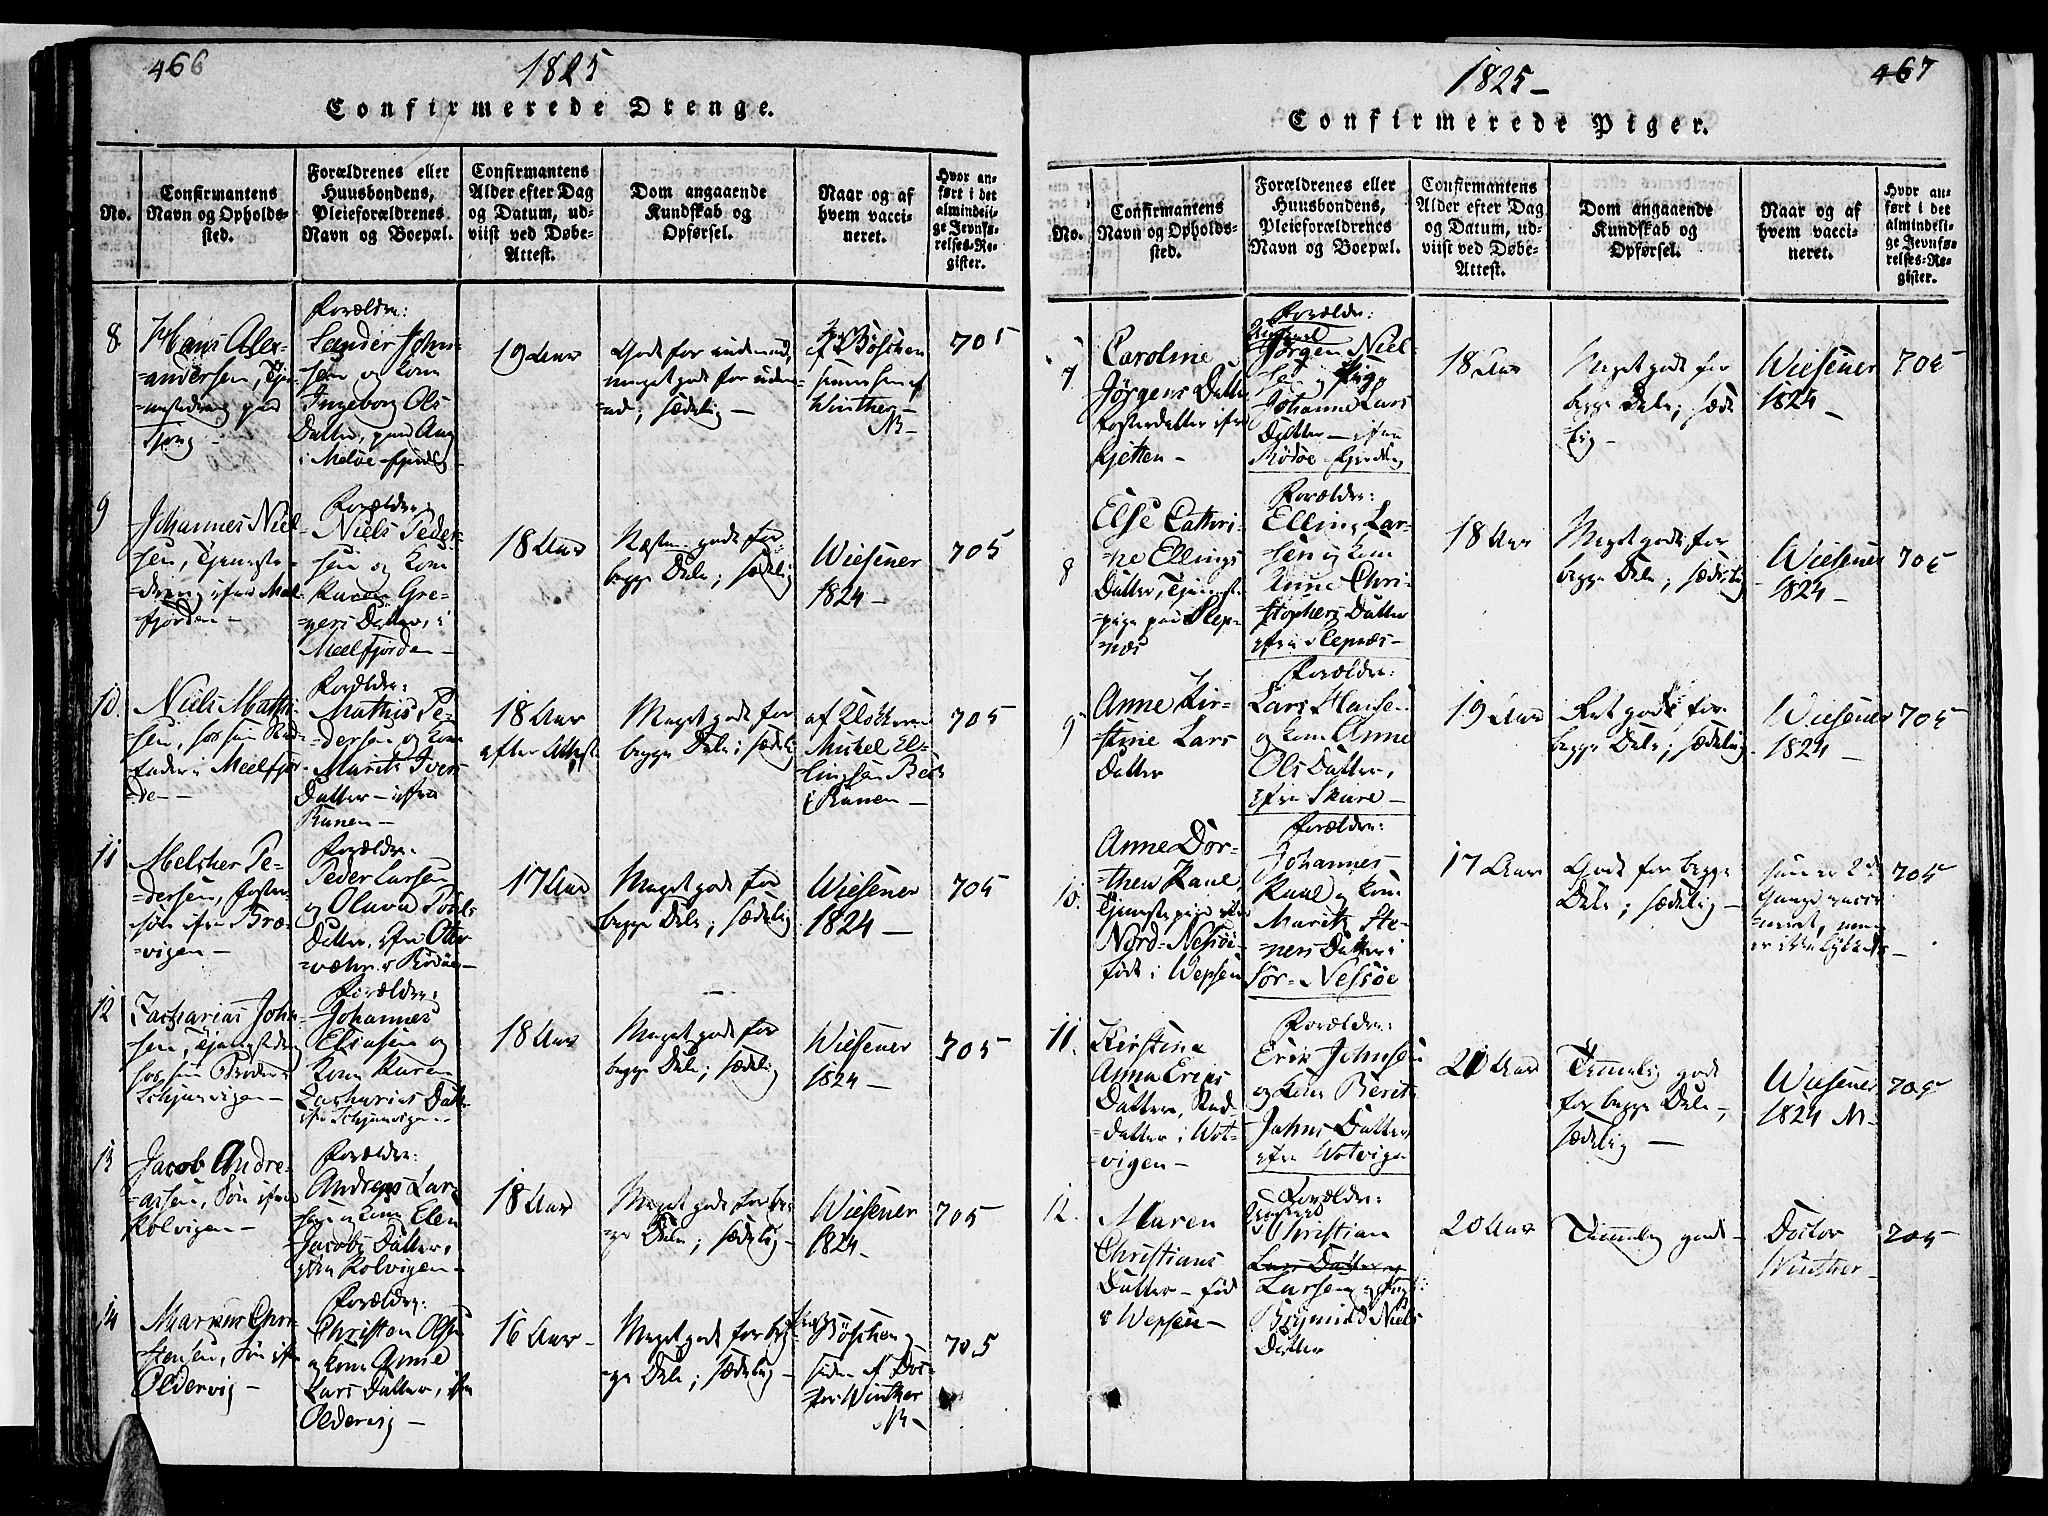 466
1825
Confirmerede Drenge.
No.
Confirmantens
Navn og Opholds-
sted.
Forældrenes eller
Huusbondens,
Pleieforældrenes
Navn og Boepæl.
Confirmantens
Alder efter Dag
og Datum, ud-
viist ved Døbe-
Attest.
Dom angaaende
Kundskab og
Opførsel.
Naar og af
hvem vacci-
neret.
Hvor an-
ført i det
almindeli-
ge Jevnfø-
relses-Re-
gister.
8
Hans Alex-
andersen,
Tjong -
Forældre:
Sander John-
sen og Kone
Ingeborg Ols
Datter, paa
i Meløe-fjerding
19 Aar
Godt for
meget godt for
sædelig -
af
Winther
705
9
Johannes Niel-
sen, Tjeneste-
dreng ifra Mel-
fjorden -
Forældre:
Niels Peder-
sen og Kone
Karen Gre-
gers Datter, i
Meelfjorden -
18 Aar
Næsten godt for
begge Dele; sædelig
Wiesener
1824 -
705
10.
Niels Mathi-
sen, hos sin
fader i Meelfjor-
den -
Forældre:
Mathis Pe-
dersen og Kone
Marith Ivers
Datter - ifra
Ranen -
18 Aar
efter Attest
Meget godt for
begge Dele; sædelig
af Klokkeren
Michel El-
lingsen
i Ranen -
705
11
Melcher Pe-
dersen, foster-
søn ifra Bræ-
vigen -
Forældre:
Peder Larsen
og Olava Povls
Datter, ifra Otter-
værn i Rödöe -
17 Aar
Meget godt for
begge Dele; sædelig
Wiesener
1824 -
705
12
Zacharias John-
sen, Tjenestedreng
hos sin Broder i
Schjervigen -
Forældre:
Johannes
Eliasen og
Kone Karen
Zacharias Datter
ifra Schjervigen -
18 Aar
Meget godt for
begge Dele; sædelig
Wiesener
1824 -
705
13
Jacob Andre-
assen, Søn ifra
Kolvigen -
Forældre:
Andreas Lar-
sen og Kone Elen
Jacobs Datter,
ifra Kolvigen -
18 Aar
Meget godt for beg-
ge Dele; sædelig -
Wiesener
1824 -
705
14
Markus Chri-
stensen, Søn ifra
Oldervig -
Forældre:
Christen Olsen
og Kone Anne
Lars Datter, ifra
Oldervig -
16 Aar -
Meget godt for beg-
ge Dele; sædelig -
siden af Doc-
tor Winther
705
467
1825 -
Confirmerede Piger.
No.
Confirmantens
Navn og Opholds-
sted.
Forældrenes eller
Huusbondens,
Pleieforældrenes
Navn og Boepæl.
Confirmantens
Alder efter Dag
og Datum, ud-
viist ved Døbe-
Attest.
Dom angaaende
Kundskab og
Opførsel.
Naar og af
hvem vacci-
neret.
Hvor an-
ført i det
almindelig-
ge Jevnfø-
relses-Re-
gister.
7
Caroline
Jørgens Datter
fosterdatter ifra
Gjetten -
Forældre:
Ungkarl
Jørgen Niel-
sen og Pige
Johanne Lars
Datter - ifra
Rödöe-fjerding
18 Aar
Meget godt for
begge Dele; sæde-
lig -
Wiesener
1824 -
705
8
Else Cathri-
ne Ellings
Datter, Tjeneste-
pige paa Slep-
næs
Forældre:
Elling Lar-
sen og Kone
Anne Chri-
stophers Datter
ifra Slepnæs -
18 Aar
Meget godt for
begge Dele; sædelig
Wiesener
1824 -
705
9
Anne Kir-
stine Lars
Datter
Forældre:
Lars Hansen
og Kone Anne
Ols Datter,
ifra Skare -
19 Aar
Ret godt for
begge Dele; sædelig
Wiesener
1824 -
705
10.
Anne Dor-
thea Kaal,
Tjenestepige
Nord-Nessöe
født i Wepsen
Forældre:
Johannes
Kaal og Kone
Marith Ste-
ners Datter i
Sör-Nessöe
17 Aar
Godt for begge
Dele; sædelig -
hun er 2de
Gange vacci-
neret, men
er ikke lykkedes -
705
11.
Kirstina
Anna Eriks
Datter,
datter i Wot-
vigen -
Forældre:
Erik Johnsen
og Kone Berith
Johns Datter
ifra Wotvigen
20 Aar
Temmelig godt
for begge Dele,
sædelig -
Wiesener
1824
705
12.
Maren
Christians
Datter - fød
i Wepsen -
Forældre:
Ungkarl
Christian
Lars Datter og
Larsen og Pige:
Datter
20 Aar
Temmelig godt -
Doctor
Winther -
705